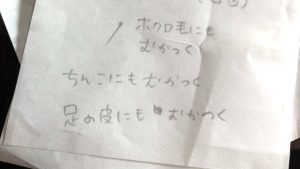 ホクロ毛にも
むかつく
ちんこにもむかつく
足の皮にもむかつく